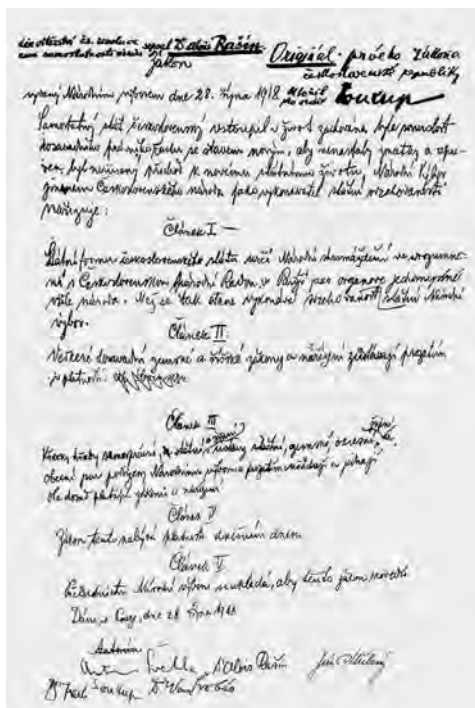 sepsal Dr Alois Rašín. Originál prvého zákona
zákon československé republiky
vydaný Národním výborem dne 28. října 1918. uložil Soukup
Samostatný stát československý vstoupil v život. zachována byla souvislost
dosavadního právního řádu se stavem novým, aby nenastaly zmatky a
upraven byl nerušený přechod k novému státnímu životu, Národní výbor
jménem Československého národa jako vykonavatel státní svrchovanosti
nařizuje:
Článek I
Státní formu československého státu určí Národní shromáždění ve srozumě-
ní s Československou Národní Radou v Paříži jako orgánové jednomyslné
vůle národa. Než se tak stane vykonává svrchovanost státní Národní
výbor.
Článek II
Veškeré dosavadní zemské a říšské zákony a nařízení zůstávají prozatím
v platnosti.
Článek III
Všechny úřady samosprávné, státní a župní, ústavy státní, zemské, okresní,
obecní jsou podřízeny Národnímu výboru a prozatím úřadují a jednají
dle dosud platných zákonů a nařízení
Článek V
Zákon tento nabývá platnosti dnešním dnem
Článek V
Předsednictvu Národní výboru se ukládá, aby tento zákon provedlo
Dáno v Praze, dne 28 října 1918
Antonín
Antonín Švehla Dr Alois Rašín Jiří Stříbrný
Dr Frant Soukup Dr Vavro Šrobár